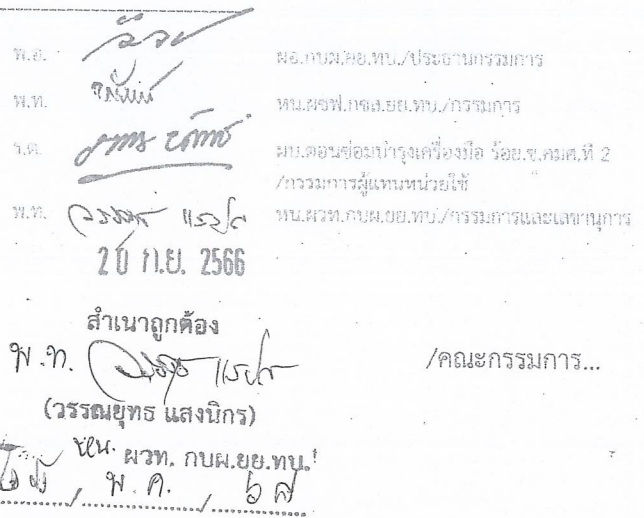 พ.อ. ผอ.กบผ.ยย.ทบ./ประธานกรรมการ
พ.ท. หน.ผซฟ.กซส.ยย.ทบ./กรรมการ
ร.ต. ผบ.ตอนซ่อมบำรุงเครื่องมือ ร้อย.ช.คมศ.ที่ 2
/กรรมการผู้แทนหน่วยใช้
พ.ท. หน.ผวท.กบผ.ยย.ทบ./กรรมการและเลขานุการ
20 ก.ย. 2566
สำเนาถูกต้อง
พ.ท.
/คณะกรรมการ...
(วรรณยุทธ แสงนิกร)
หน. ผวท. กบผ.ยย.ทบ.
/ พ.ค. /